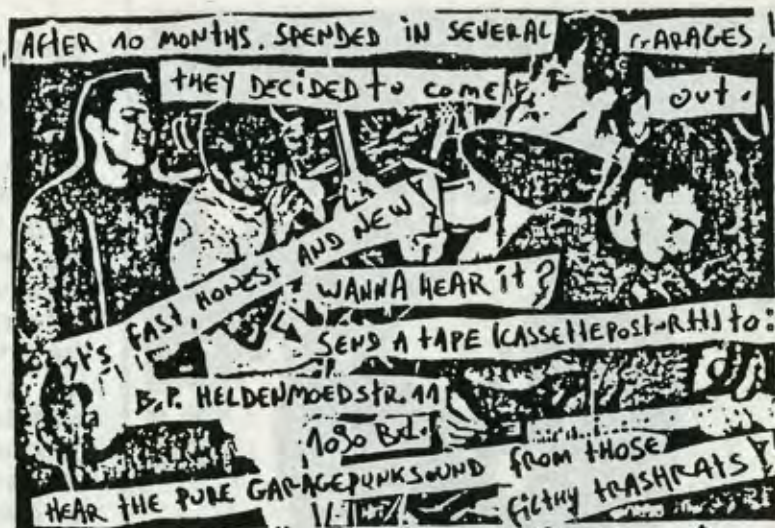 AFTER 10 MONTHS. SPENDED iN SEVERAL GARAGES,
tHEY DECiDED to come out.
It's FAST, HONEST AND NEW
WANNA HEAR it?
SEND A tAPE (CASSETTEPOST-R.H.) to:
B.P. HELDENMOEDStR. 11
1090 Bxl.
HEAR tHE PURE GARAGEPUNKSOUND FROM tHOSE
FiLtHY tRASHRATS